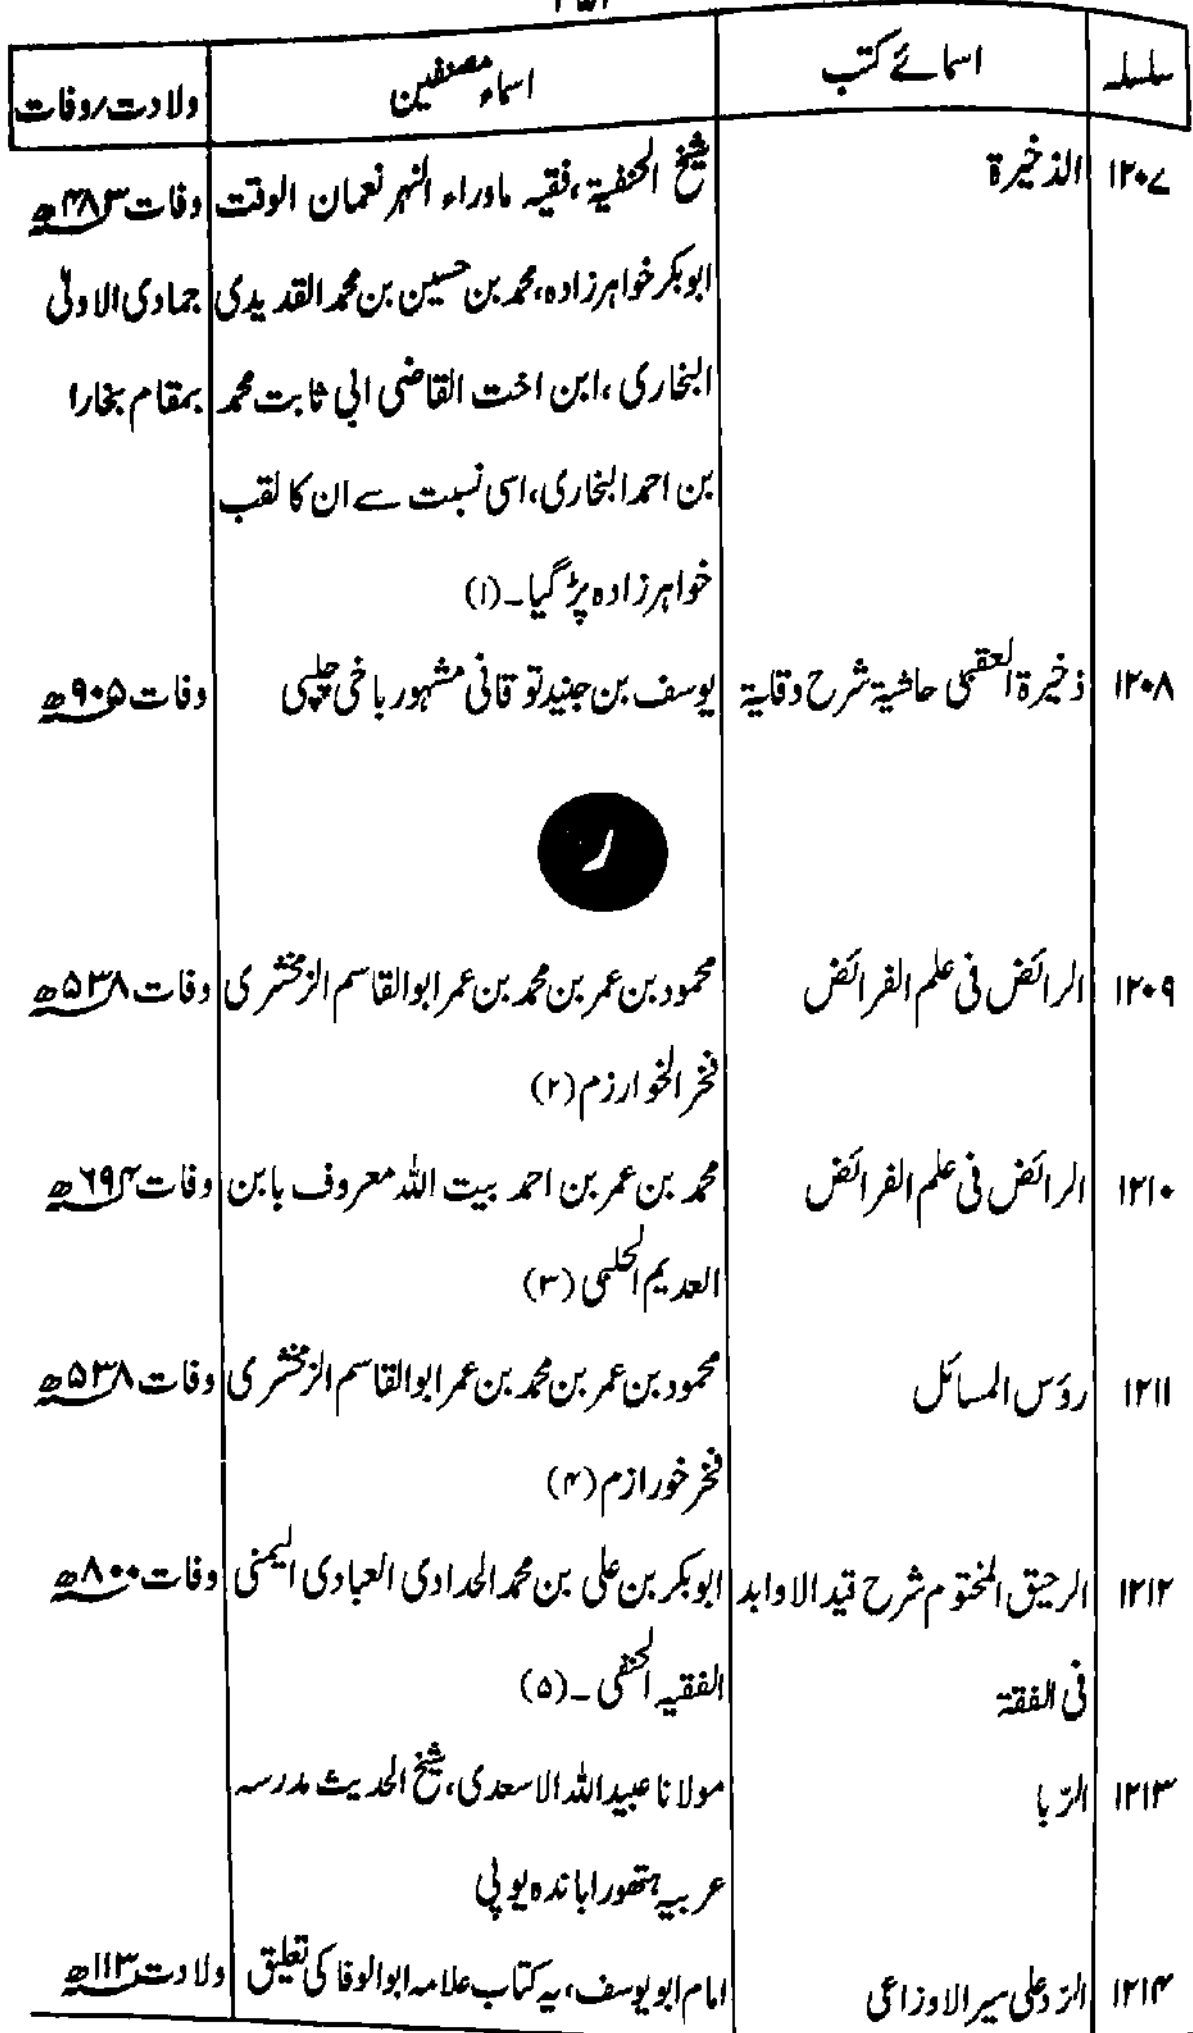 سلسلہ اسمائے کتب اسماء مصنفین ولادت/وفات
۱۲۰۷ الذخیرۃ شیخ الحنفیۃ،فقیہ ماوراء النہر نعمان الوقت وفات ۴۸۳ھ
ابوبکر خواہرزادہ،محمد بن حسین بن محمد القدیدی جمادی الاولیٰ
البخاری،ابن اخت القاضی ابی ثابت محمد بمقام بخارا
بن احمد البخاری،اسی نسبت سے ان کا لقب
خواہرزادہ پڑگیا۔(۱)
۱۲۰۸ ذخیرۃ العقبیٰ حاشیۃ شرح وقایۃ یوسف بن جنید توقانی مشہور باخی چلپی وفات ۹۰۵ھ
ر
۱۲۰۹ الرائض فی علم الفرائض محمود بن عمر بن محمد بن عمر ابوالقاسم الزمخشری وفات ۵۳۸ھ
فخر الخوارزم(۲)
۱۲۱۰ الرائض فی علم الفرائض محمد بن عمر بن احمد بیت اللہ معروف بابن وفات ۶۹۴ھ
العدیم الحلبی (۳)
۱۲۱۱ رؤس المسائل محمود بن عمر بن محمد بن عمر ابوالقاسم الزمخشری وفات ۵۳۸ھ
فخر خورازم(۴)
۱۲۱۲ الرحیق المختوم شرح قید الاوابد ابوبکر بن علی بن محمد الحدادی العبادی الیمنی وفات ۸۰۰ھ
فی الفقۃ الفقیہ الحنفی۔(۵)
۱۲۱۳ الرّبا مولانا عبیداللہ الاسعدی،شیخ الحدیث مدرسہ
عربیہ ہتھورا باندہ یوپی
۱۲۱۴ الرّد علی سیر الاوزاعی امام ابویوسف،یہ کتاب علامہ ابوالوفا کی تعلیق ولادت ۱۱۳ھ